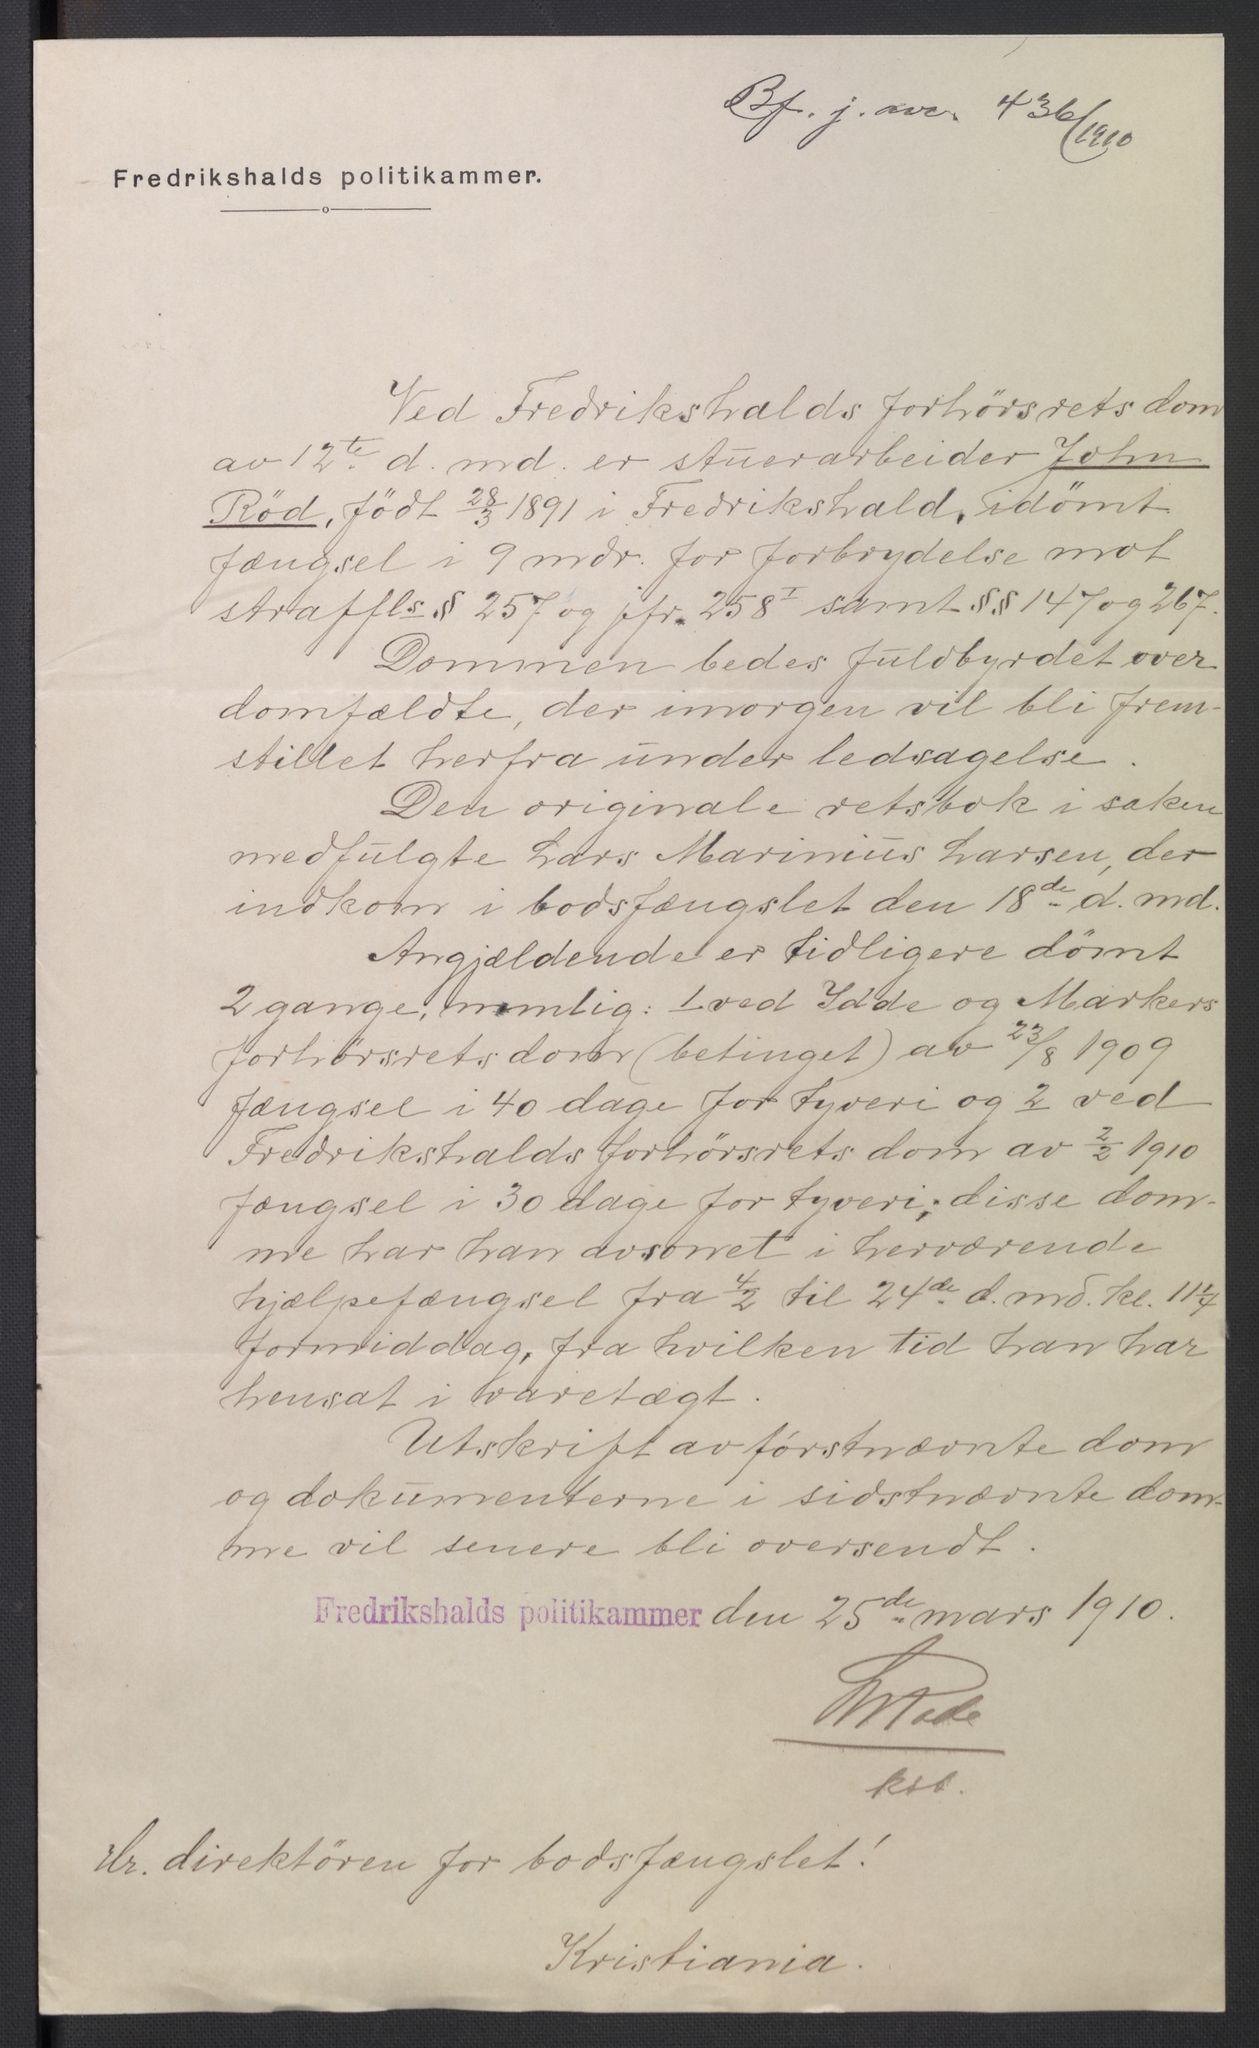 Bf. j. no. 436/1910
Fredrikshalds politikammer.
Ved Fredrikshalds forhörsrets dom
av 12te d. md. er stuerarbeider John
Röd, född 28/3 1891 i Fredrikshald, idömt
fængsel i 9 mdr. for forbrydelse mot
straffls § 257 og jfr. 258 I samt §§ 147 og 267.
Dommen bedes fuldbyrdet over
domfældte, der imorgen vil bli frem-
stillet herfra under ledsagelse.
Den originale retsbok i saken
medfulgte Lars Marinius Larsen, der
indkom i bodsfængslet den 18de d. md.
Angjældende er tidligere dömt
2 gange, nemlig: 1 ved Idde og Markers
forhörsrets dom (betinget) av 23/8 1909
fængsel i 40 dage for tyveri og 2 ved
Fredrikshalds forhörsrets dom av 2/2 1910
fængsel i 30 dage for tyveri; disse dom-
me har han avsonet i herværende
hjælpefængsel fra 4/2 til 24de d. md. kl. 11 1/4
formiddag, fra hvilken tid han har
hensat i varetægt.
Utskrift av förstnævnte dom
og dokumenterne i sidstnævnte dom-
me vil senere bli oversendt.
Fredrikshalds politikammer den 25de mars 1910.
kst.
Hr. direktören for bodsfængslet!
Kristiania.